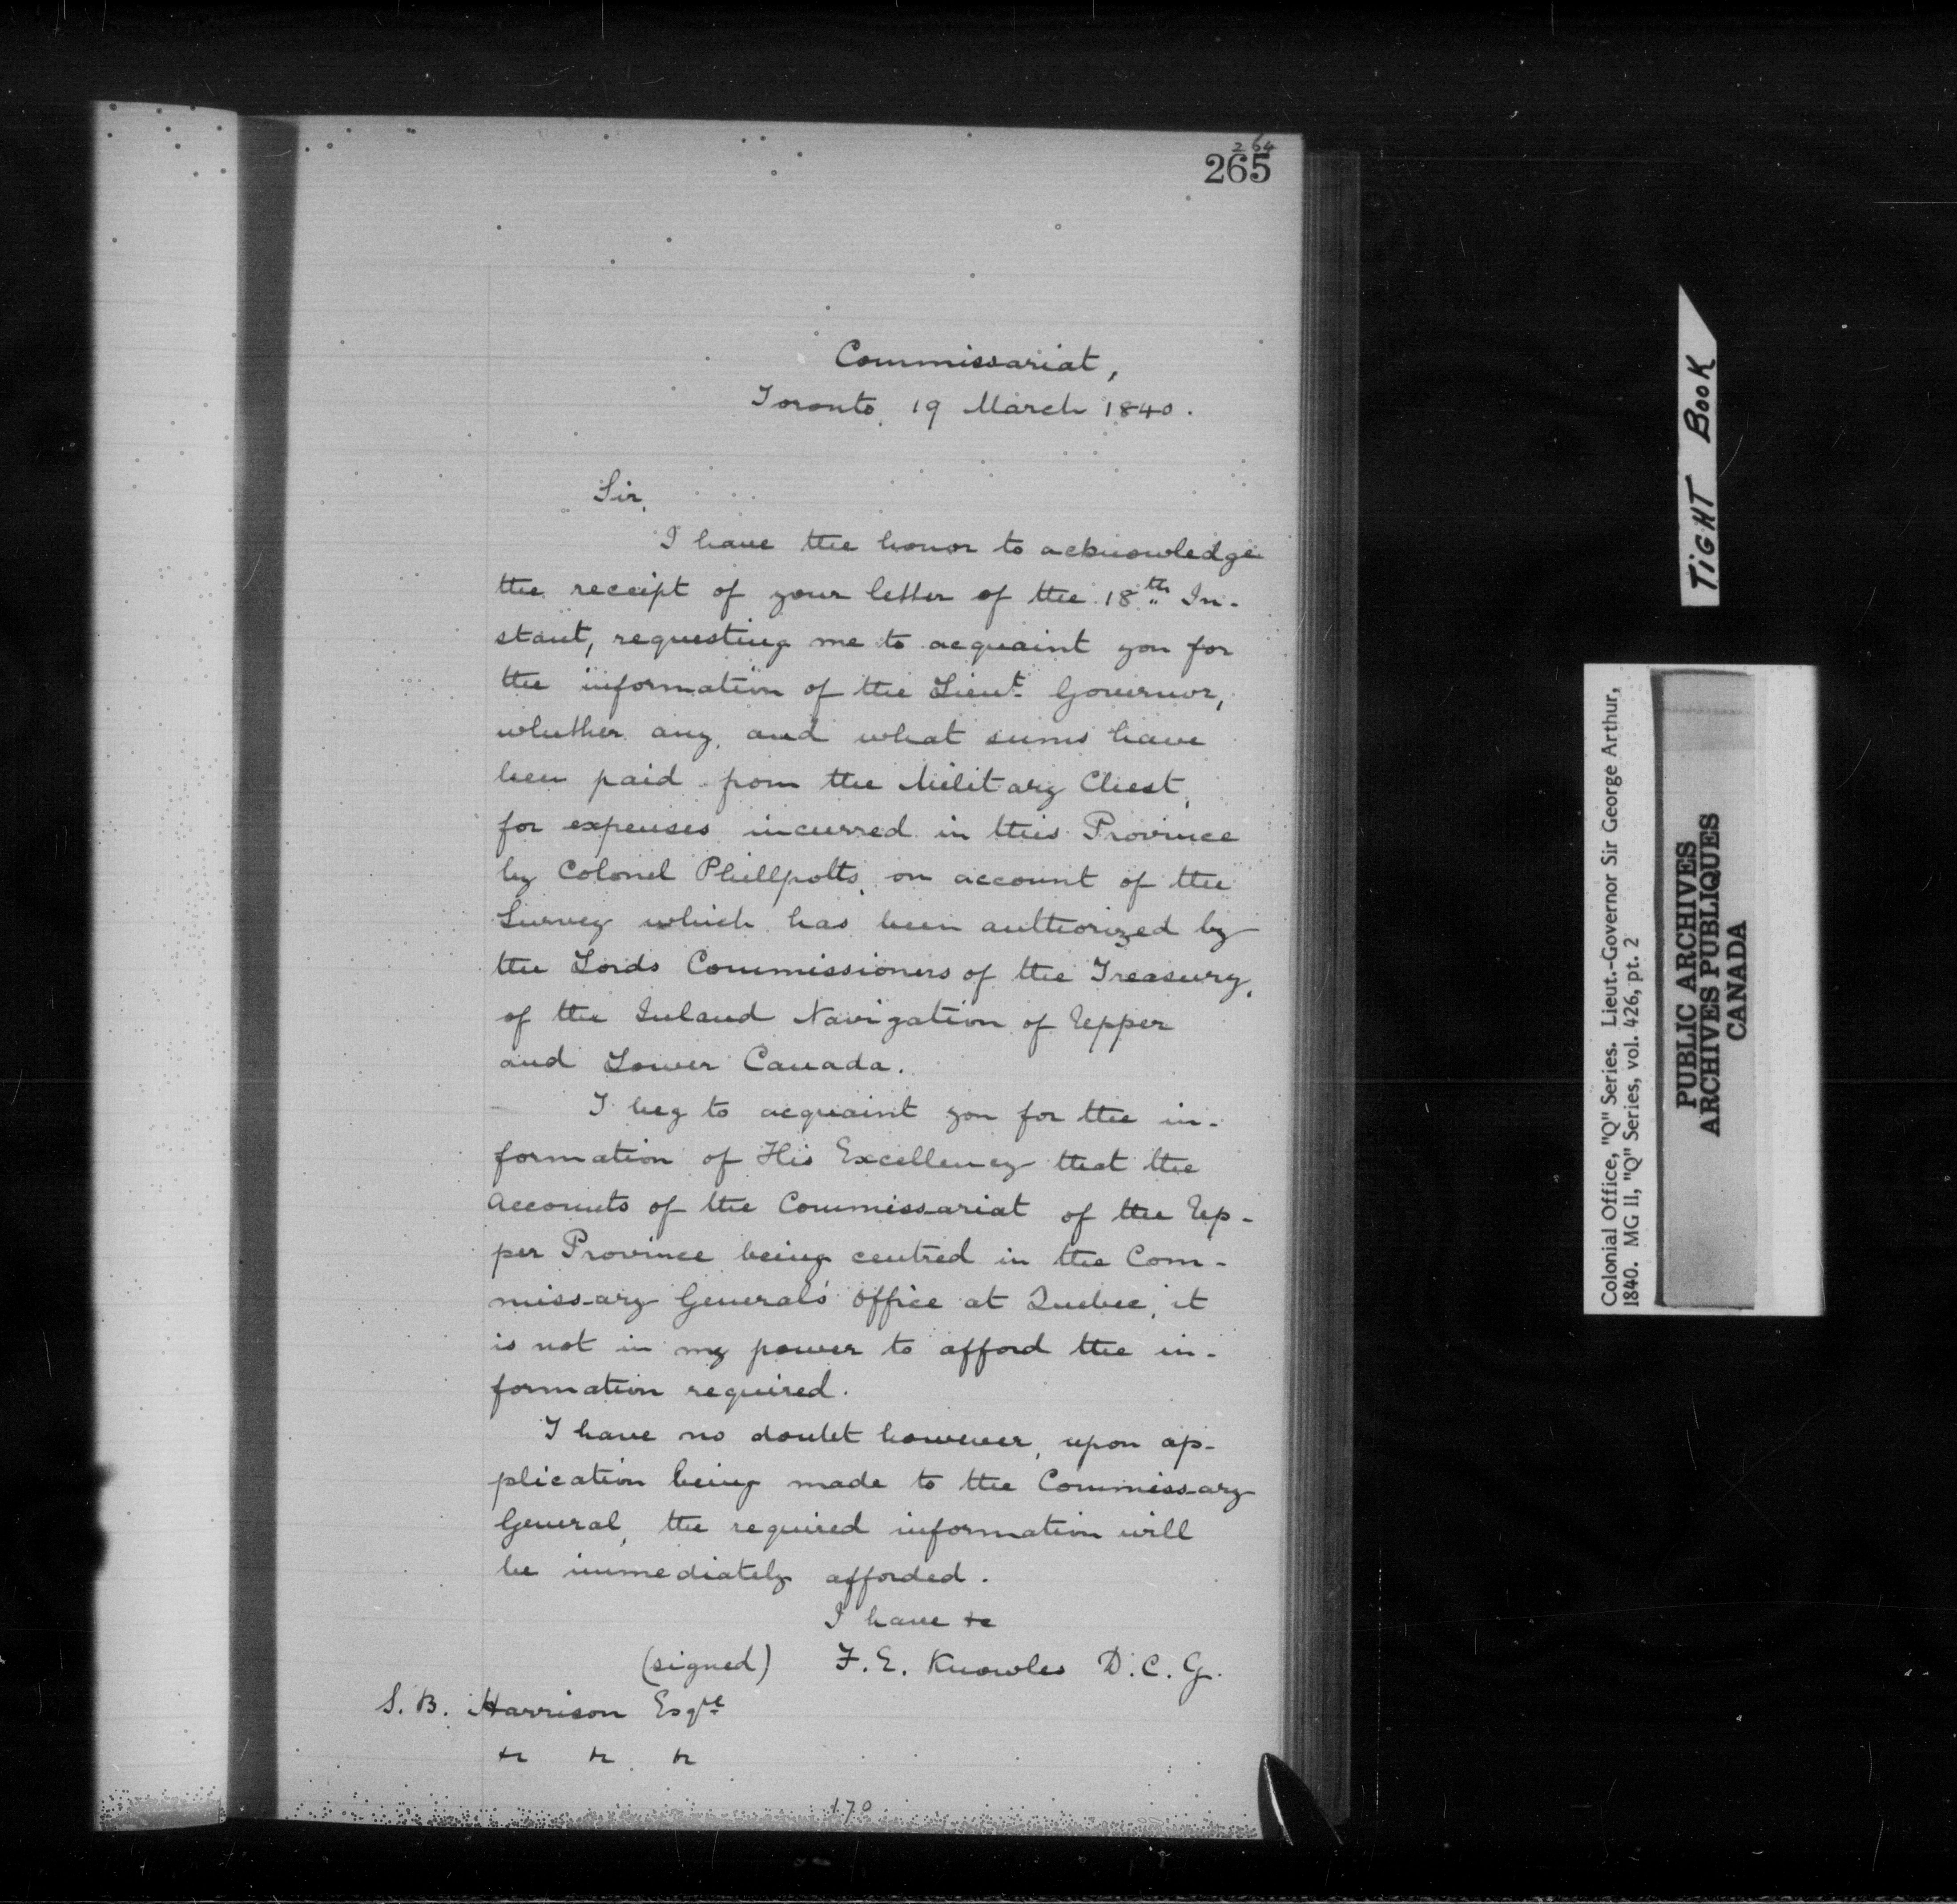 264
265
Commissariat,
Toronto, 19 March 1840.
Sir,
I have the honor to acknowledge
the receipt of your letter of the 18th In-
stant, requesting me to acquaint you for
the information of the Lieut. Governor,
whether any, and what sums have
been paid from the Military Chest,
for expenses incurred in this Province
by Colonel Phillpotts, on account of the
Survey which has been authorized by
the Lords Commissioners of the Treasury,
of the Inland Navigation of Upper
and Lower Canada.
I beg to acquaint you for the in-
formation of His Excellency that the
Accounts of the Commissariat of the Up-
per Province being centred in the Com-
missary General's Office at Quebec, it
is not in my power to afford the in-
formation required.
I have no doubt however, upon ap-
plication being made to the Commissary
General, the required information will
be immediately afforded.
I have &c
(signed) F. E. Knowles D. C. G.
S. B. Harrison Esqre
&c &c &c
170
TIGHT BOOK
Colonial Office, "Q" Series. Lieut.-Governor Sir George Arthur,
1840. MG 11, "Q" Series, vol. 426, pt. 2
PUBLIC ARCHIVES
ARCHIVES PUBLIQUES
CANADA